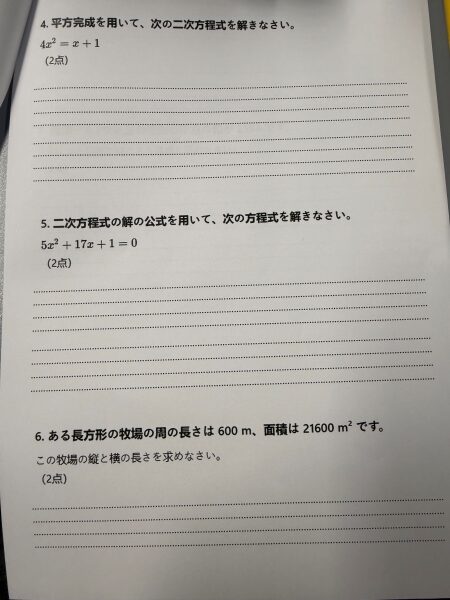 4. 平方完成を用いて、次の二次方程式を解きなさい。
4x² = x + 1
(2点)
5. 二次方程式の解の公式を用いて、次の方程式を解きなさい。
5x² + 17x + 1 = 0
(2点)
6. ある長方形の牧場の周の長さは 600 m、面積は 21600 m² です。
この牧場の縦と横の長さを求めなさい。
(2点)